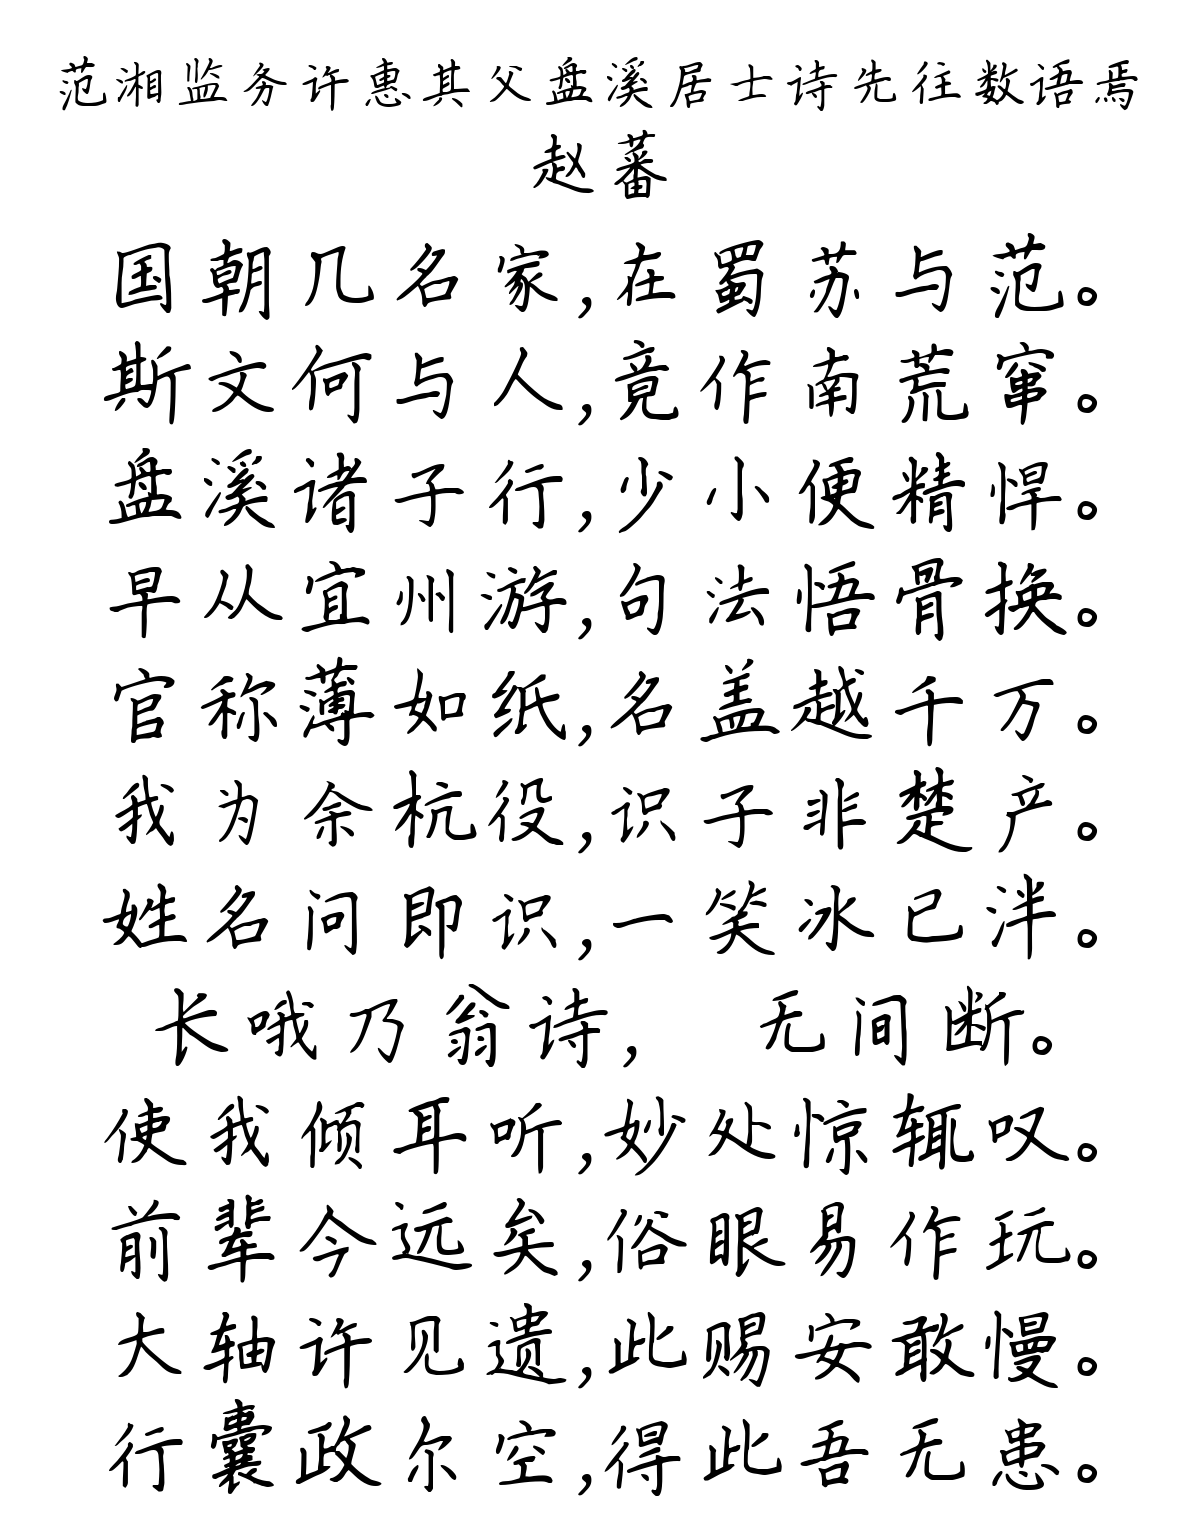 范湘监务许惠其父盘溪居士诗先往数语焉
赵蕃
国朝几名家,在蜀苏与范。
斯文何与人,竟作南荒窜。
盘溪诸子行,少小便精悍。
早从宜州游,句法悟骨换。
官称薄如纸,名盖越千万。
我为余杭役,识子非楚产。
姓名问即识,一笑冰已泮。
长哦乃翁诗, 无间断。
使我倾耳听,妙处惊辄叹。
前辈今远矣,俗眼易作玩。
大轴许见遗,此赐安敢慢。
行囊政尔空,得此吾无患。